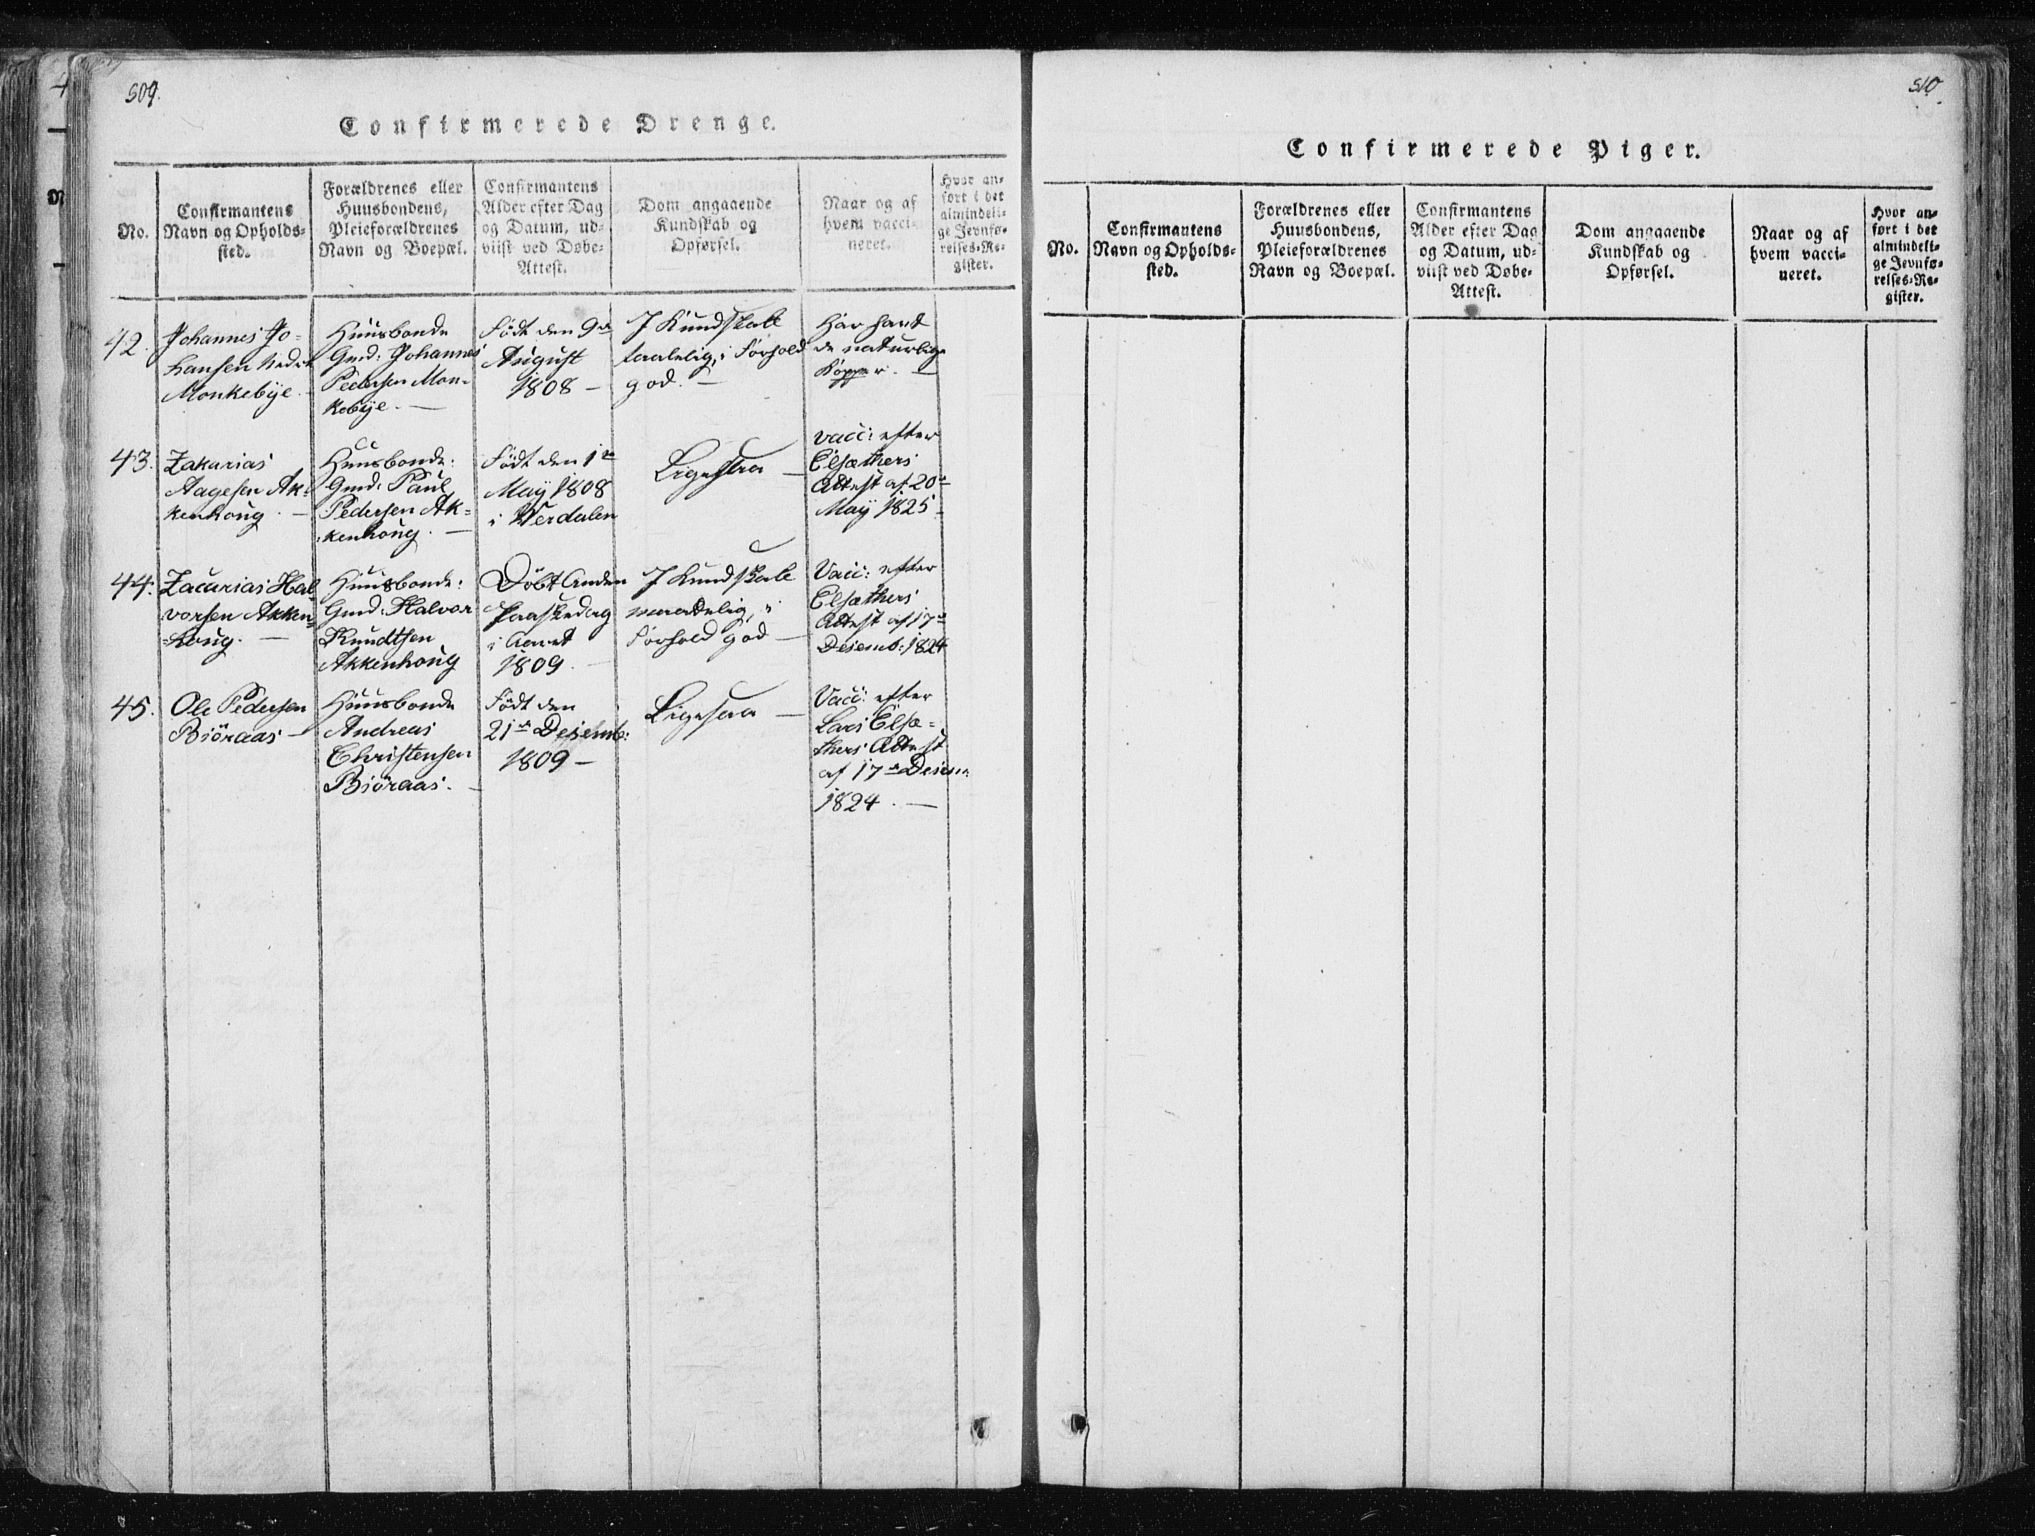 509.
Confirmerede Drenge.
No.
Confirmantens
Navn og Opholds-
sted.
Forældrenes eller
Huusbondens,
Pleieforældrenes
Navn og Boepæl.
Confirmantens
Alder efter Dag
og Datum, ud-
viist ved Døbe-
Attest.
Dom angaaende
Kundskab og
Opførsel.
Naar og af
hvem vacci-
neret.
Hvor an-
ført i det
almindeli-
ge Jevnfø-
relses-Re-
gister.
42.
Johannes Jo-
hansen Nedre
Monkebÿe.
Huusbonde
Gmd: Johannes
Pedersen Mon-
kebÿe. —
Født den 9de
August
1808 —
I Kundskab
taalelig, i Forhold
god. —
Har havt
de naturlige
Kopper. —
43.
Zakarias
Aagesen Ak-
kenhoug. —
Huusbonde:
Gmd: Paul
Pedersen Ak-
kenhoug. —
Født den 1te
Maÿ 1808
i Werdalen
Ligesaa —
Vacc: efter
Elsæthers
Attest af 20de
Maÿ 1825 —
44.
Zacarias Hal
vorsen Akken-
houg. —
Huusbonde:
Gmd: Halvor
Knudtsen
Akkenhoug
Døbt Anden
Paaskedag
i Aaret
1809. —
I Kundskab
maadelig, i
Forhold god —
Vacc: efter
Elsæthers
Attest af 17de
Desemb: 1824
45.
Ole Pedersen
Biöraas —
Huusbonde
Andreas
Christensen
Biöraas. —
Født den
21de Desemb:
1809 —
Ligesaa —
Vacc: efter
Lars Elsæ-
thers Attest
af 17de Desem:
1824. —
510.
Confirmerede Piger.
No.
Confirmantens
Navn og Opholds-
sted.
Forældrenes eller
Huusbondens,
Pleieforældrenes
Navn og Boepæl.
Confirmantens
Alder efter Dag
og Datum, ud-
viist ved Døbe-
Attest.
Dom angaaende
Kundskab og
Opførsel.
Naar og af
hvem vacci-
neret.
Hvor an-
ført i det
almindeli-
ge Jevnfø-
relses-Re-
gister.